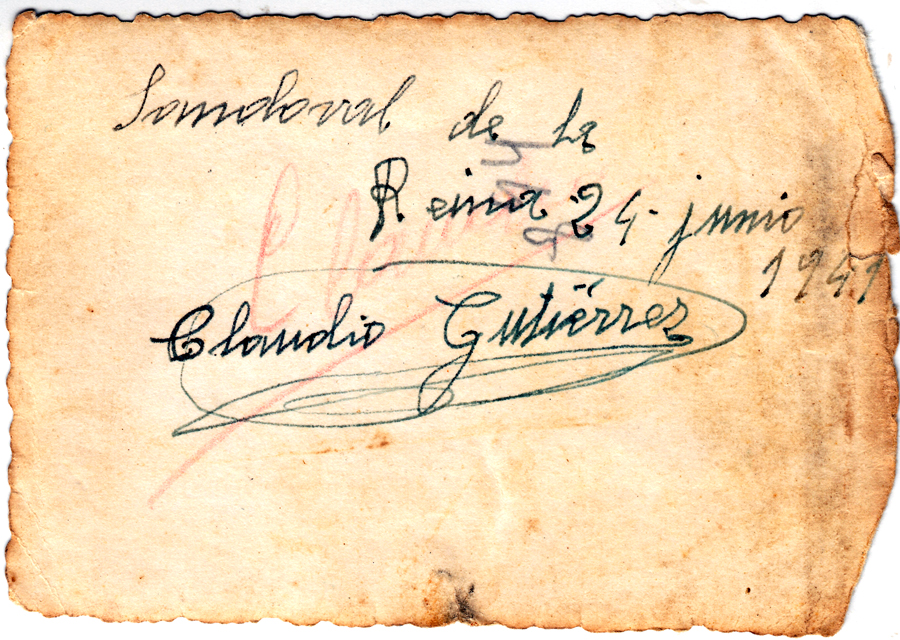 Sandoval de la
Reina 24- junio
1941
Claudio Gutiérrez